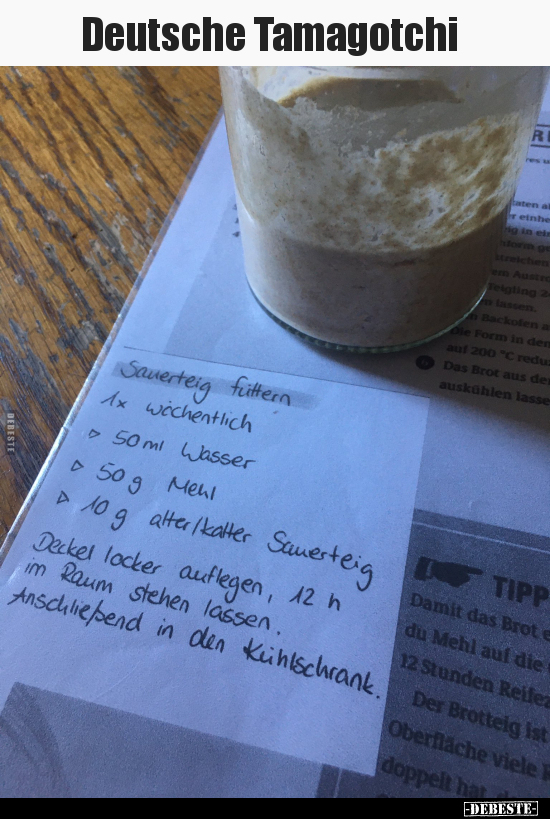 Deutsche Tamagotchi
Sauerteig füttern
1x wöchentlich
▷ 50ml Wasser
▷ 50g Mehl
▷ 10g alter/kalter Sauerteig
Deckel locker auflegen, 12 h
im Raum stehen lassen.
Anschließend in den Kühlschrank.
auf 200 °C
Das Brot aus
auskühlen
TIPP
Damit das Brot
du Mehl auf die
12 Stunden
Der Brotteig ist
Oberfläche viele
doppelt hat
DEBESTE
-DEBESTE-